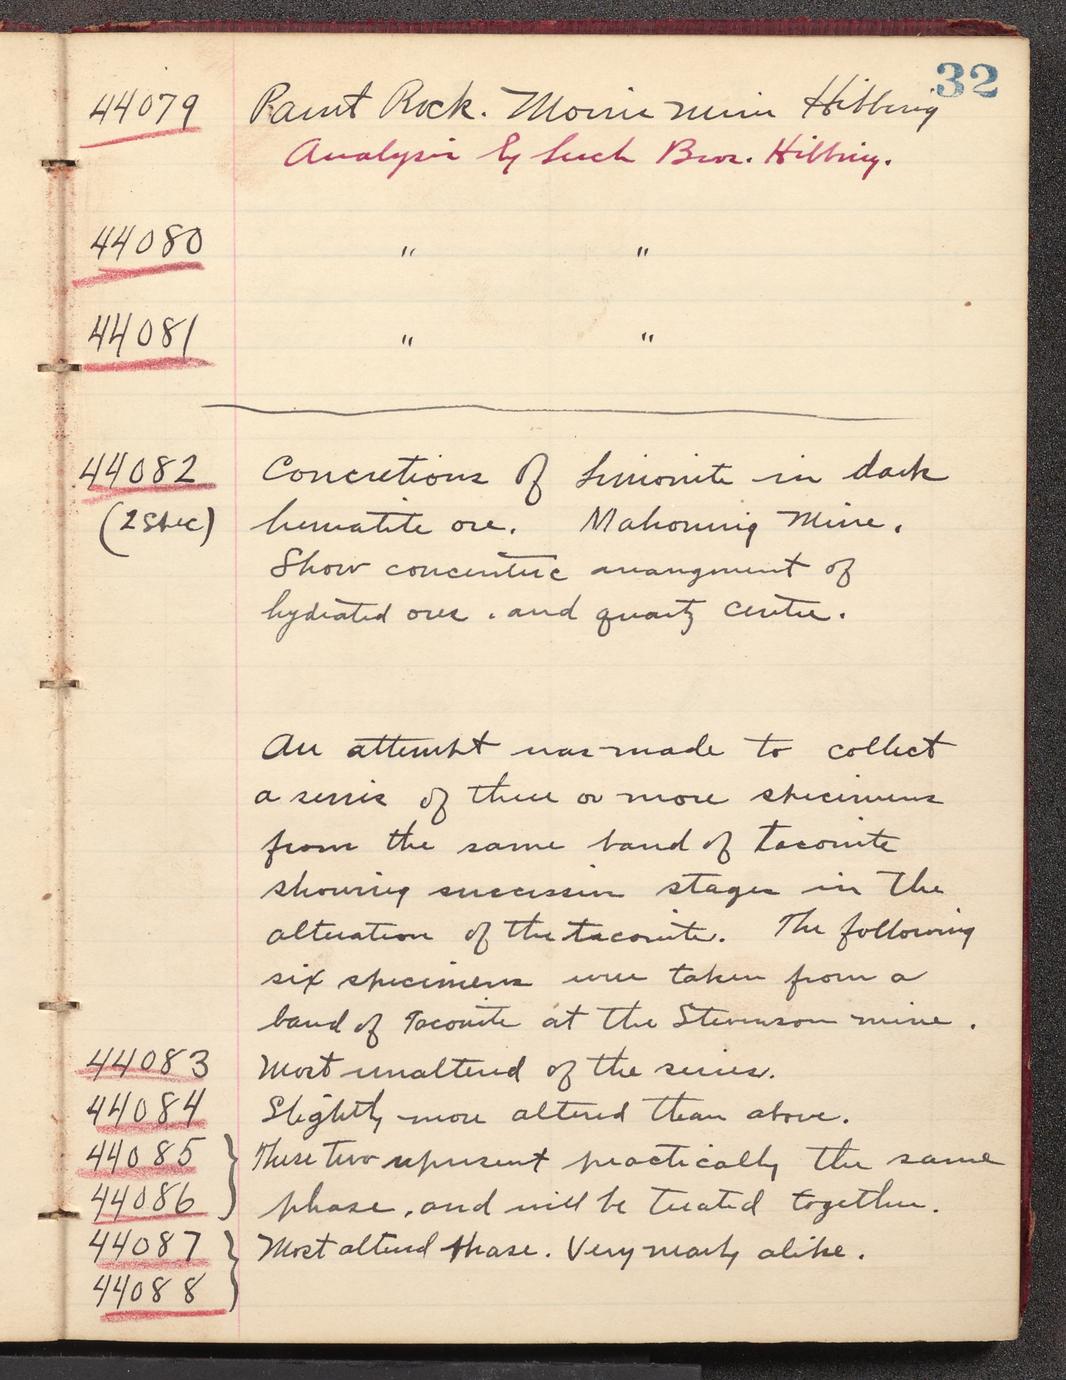 32
44079 Paint Rock. Morris mine Hibbing
Analysis by Lerch Bros. Hibbing.
44080 " "
44081 " "
44082 Concretions of limonite in dark
(2 spec) hematite ore. Mahoning Mine.
Show concentric arrangment of
hydrated ores. and quartz centre.
An attempt was made to collect
a series of three or more specimens
from the same band of taconite
showing successive stages in the
alteration of the taconite. The following
six specimens were taken from a
band of Taconite at the Stevenson mine.
44083 Most unaltered of the series.
44084 Slightly more altered than above.
44085 These two represent practically the same
44086 phase, and will be treated together.
44087 Most altered phase. Very nearly alike.
44088